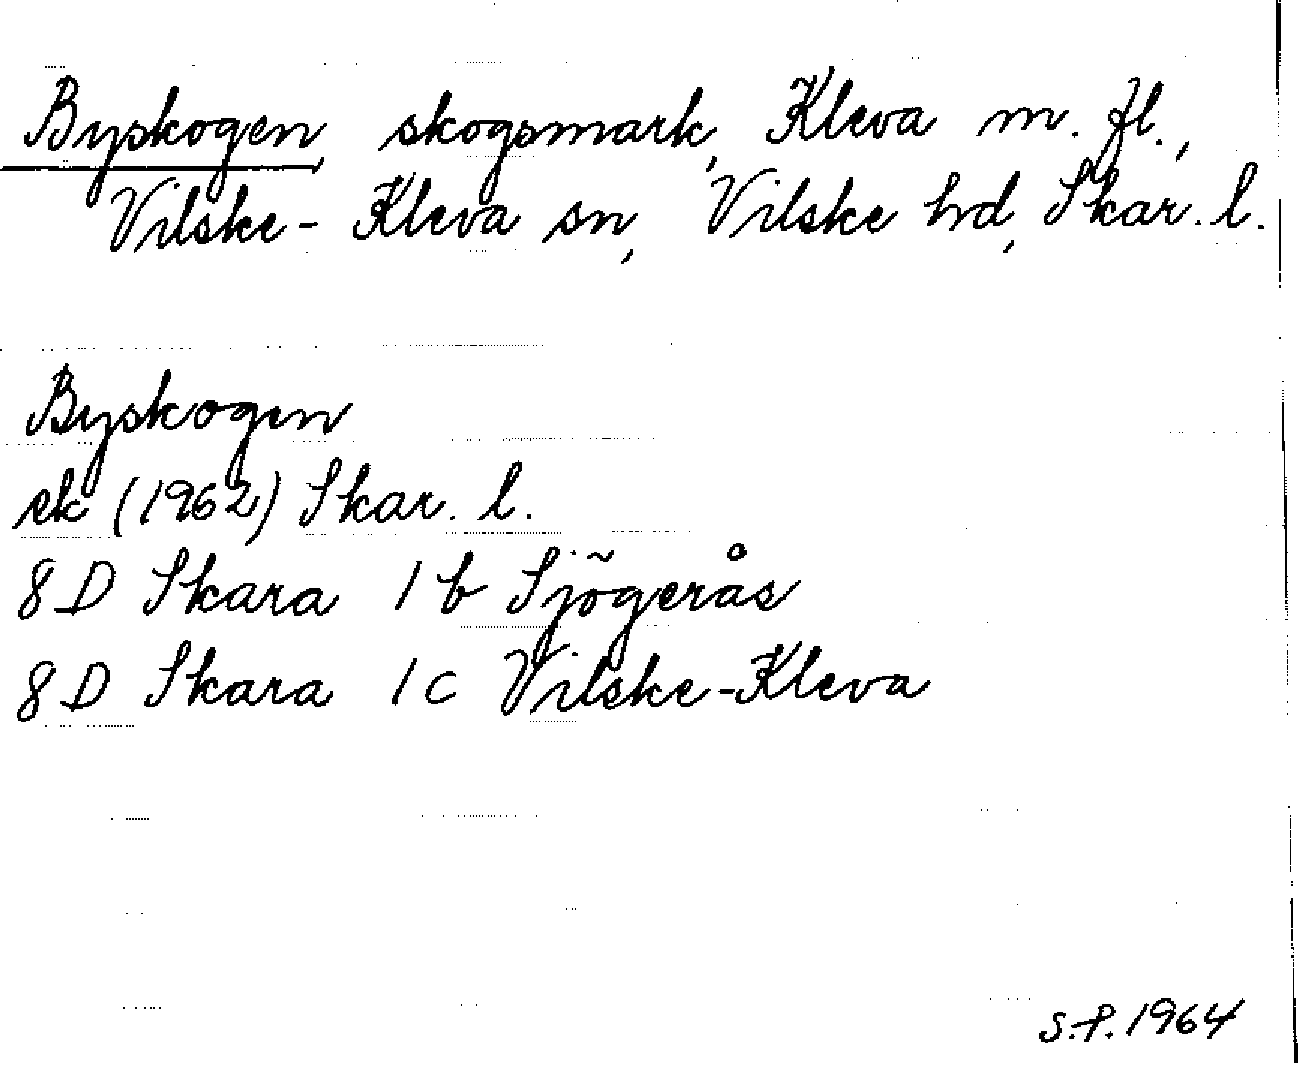 Byskogen, skogsmark, Kleva m. fl.,
Vilske-Kleva sn, Vilske hd, Skar. l.
Byskogen
ek (1962) Skar. l.
8D Skara 1 b Sjögerås
8D Skara 1 c Vilske-Kleva
S.P. 1964